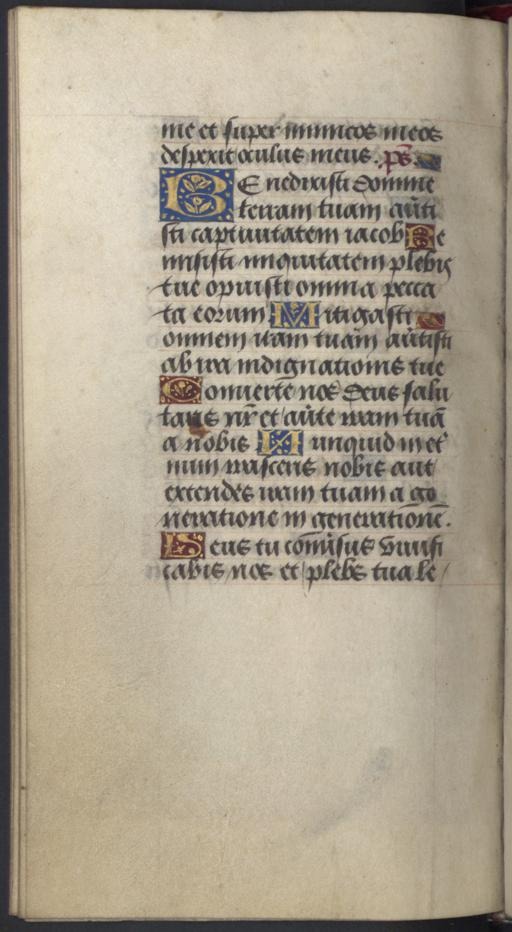 me et super inimicos meos
despexit oculus meus. ps̄
BEnedixisti domine
terram tuam av̄ti
sti captiuitatem iacob Re
misisti iniquitatem plebis
tue opuisti omnia pecca
ta eorum Mitigasti
omnem iram tuam av̄tisti
ab ira indignationis tue
Conuerte nos deus salu
taris nr̄ et av̄te iram tuā
a nobis Nunquid in et̄
num irasceris nobis aut
extendes iram tuam a ge
neratione in generationē.
Deus tu cōuersus viuifi
cabis nos et plebs tua le